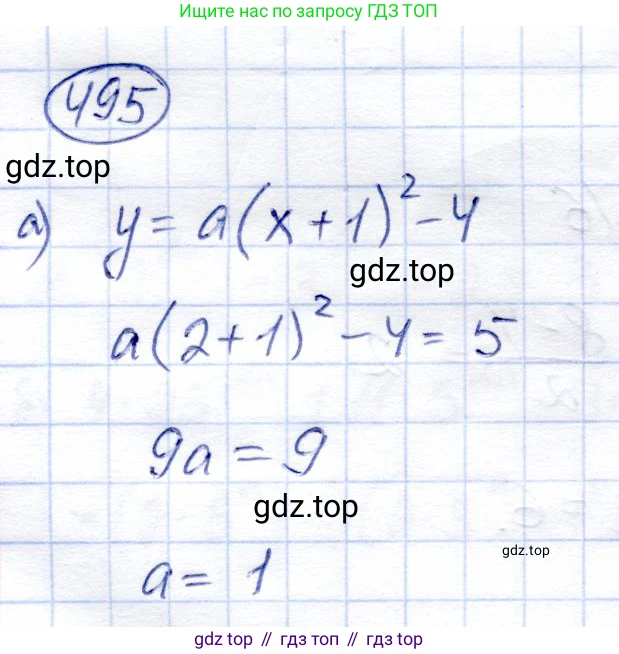 Ищите нас по запросу ГДЗ ТОП
495
gdz.top
а) y = a(x+1)² - 4
gdz.top
a(2+1)² - 4 = 5
9a = 9
gdz.top
gdz.top
a = 1
gdz top // гдз топ // gdz.top